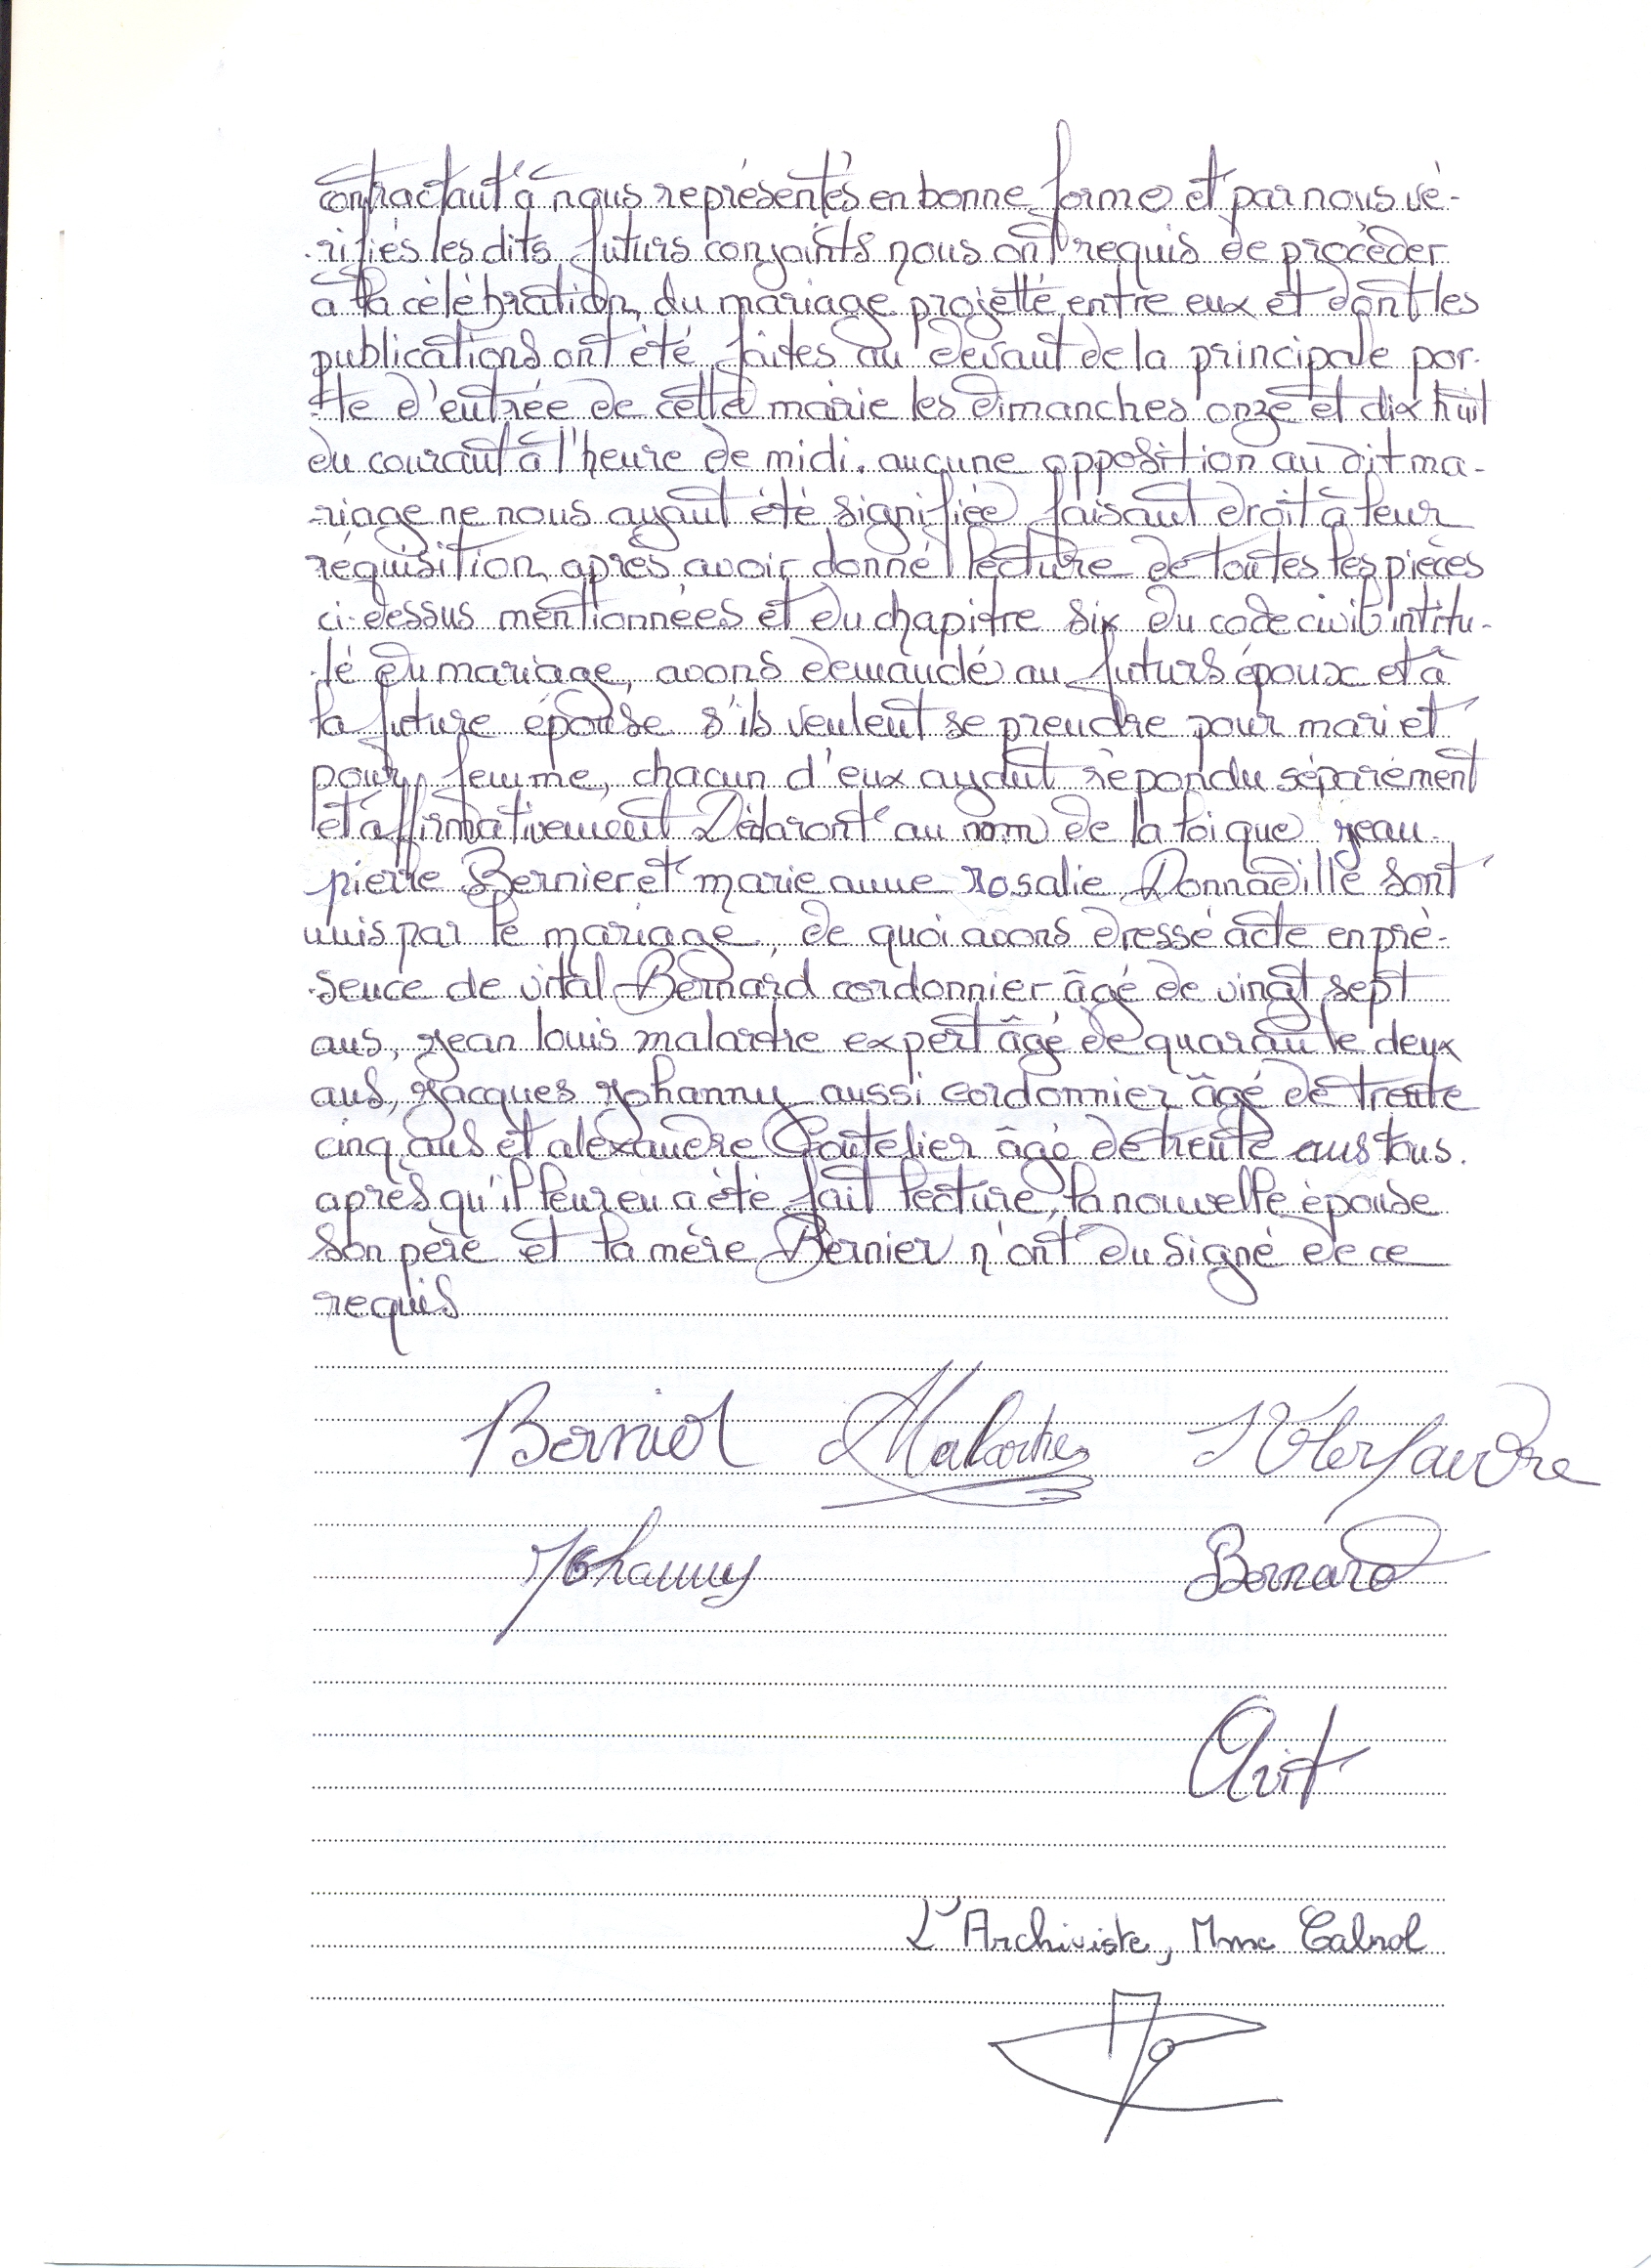 contractant à nous représentés en bonne forme et par nous vé-
-rifiés les dits futurs conjoints nous ont requis de procèder
à la célébration du mariage projetté entre eux et dont les
publications ont été faites au devant de la principale por-
-te d'entrée de cette mairie les dimanches onze et dix huit
du courant à l'heure de midi. aucune opposition au dit ma-
-riage ne nous ayant été signifiée faisant droit à leur
réquisition après avoir donné lecture de toutes les pièces
ci-dessus mentionnées et du chapitre six du code civil intitu-
-lé du mariage, avons demandé au futurs époux et à
la future épouse s'ils veulent se prendre pour mari et
pour femme, chacun d'eux ayant répondu séparément
et affirmativement Déclaront au nom de la loi que jean-
pierre Bernier et marie anne rosalie Donnadille sont
unis par le mariage, de quoi avons dressé acte en pré-
-sence de vital Bernard cordonnier âgé de vingt sept
ans, jean louis malartre expert âgé de quarante deux
ans, jacques johanny aussi cordonnier âgé de trente
cinq ans et alexandre Coutelier âgé de trente ans tous.
après qu'il leur eu a été fait lecture, la nouvelle épouse
son père et la mère Bernier n'ont du signé de ce
requis
Bernier Malartre
Johanny Bernard
Avit
L'Archiviste, Mme